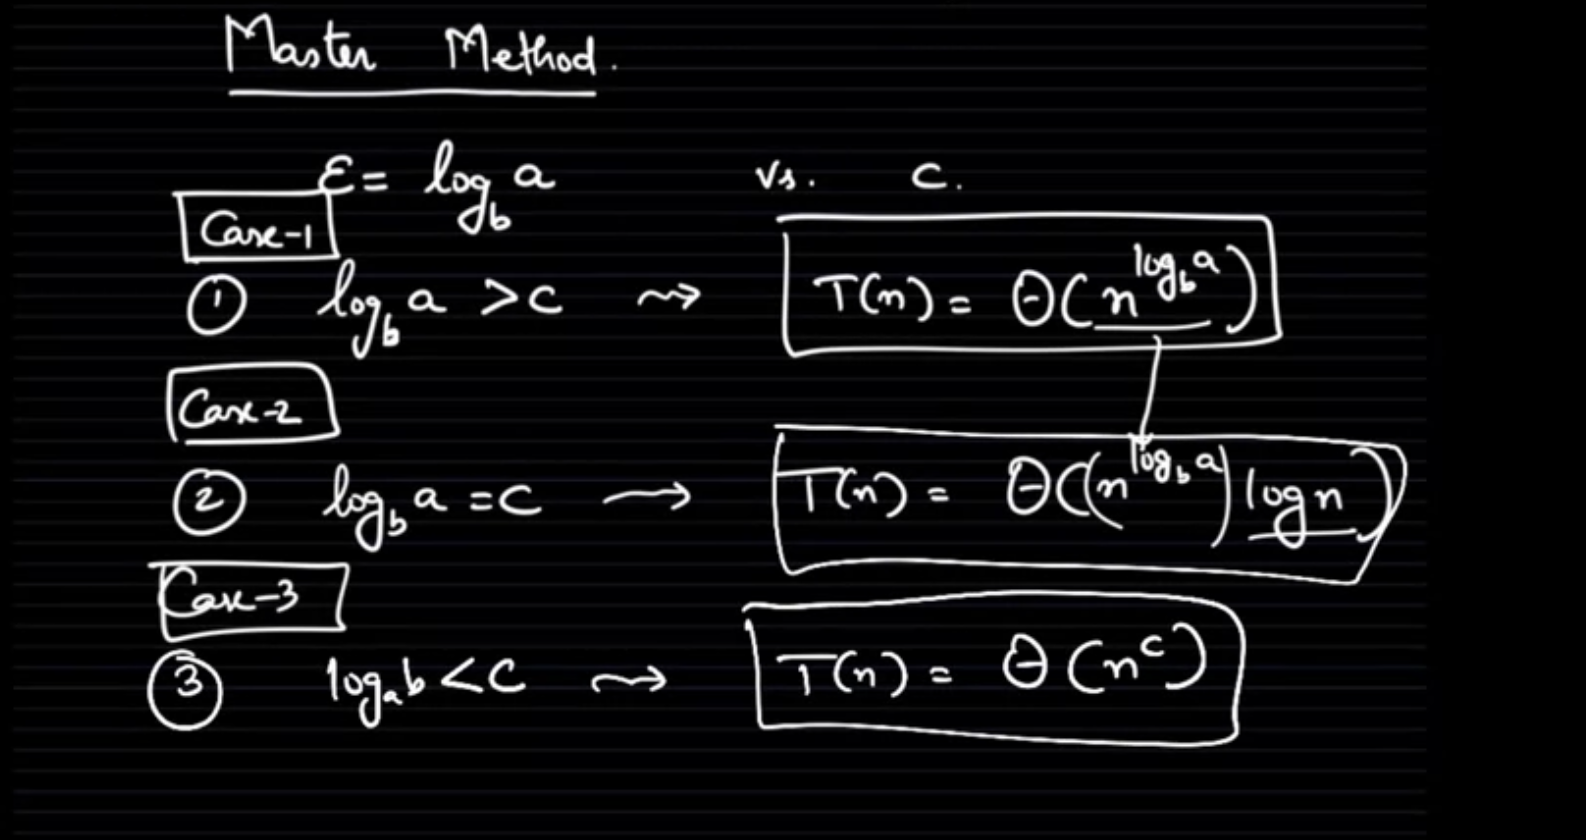 Master Method.
ε = log_b a vs. c.
Case-1
① log_b a > c ⇝ T(n) = Θ(n^{log_b a})
Case-2
② log_b a = c → T(n) = Θ((n^{log_b a}) log n)
Case-3
③ log_a b < c ⇝ T(n) = Θ(n^c)